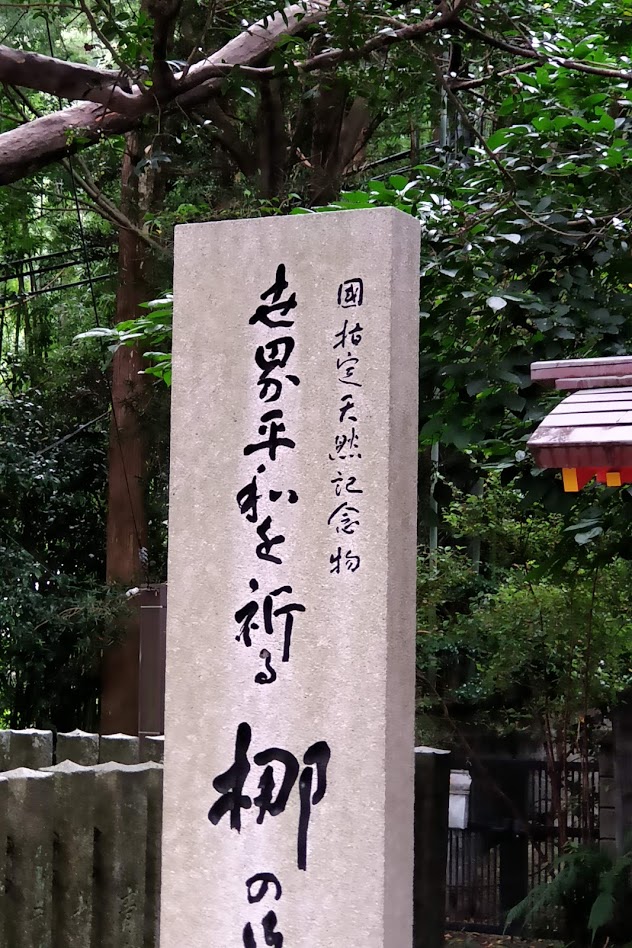 國指定天然記念物
世界平和を祈る 梛の